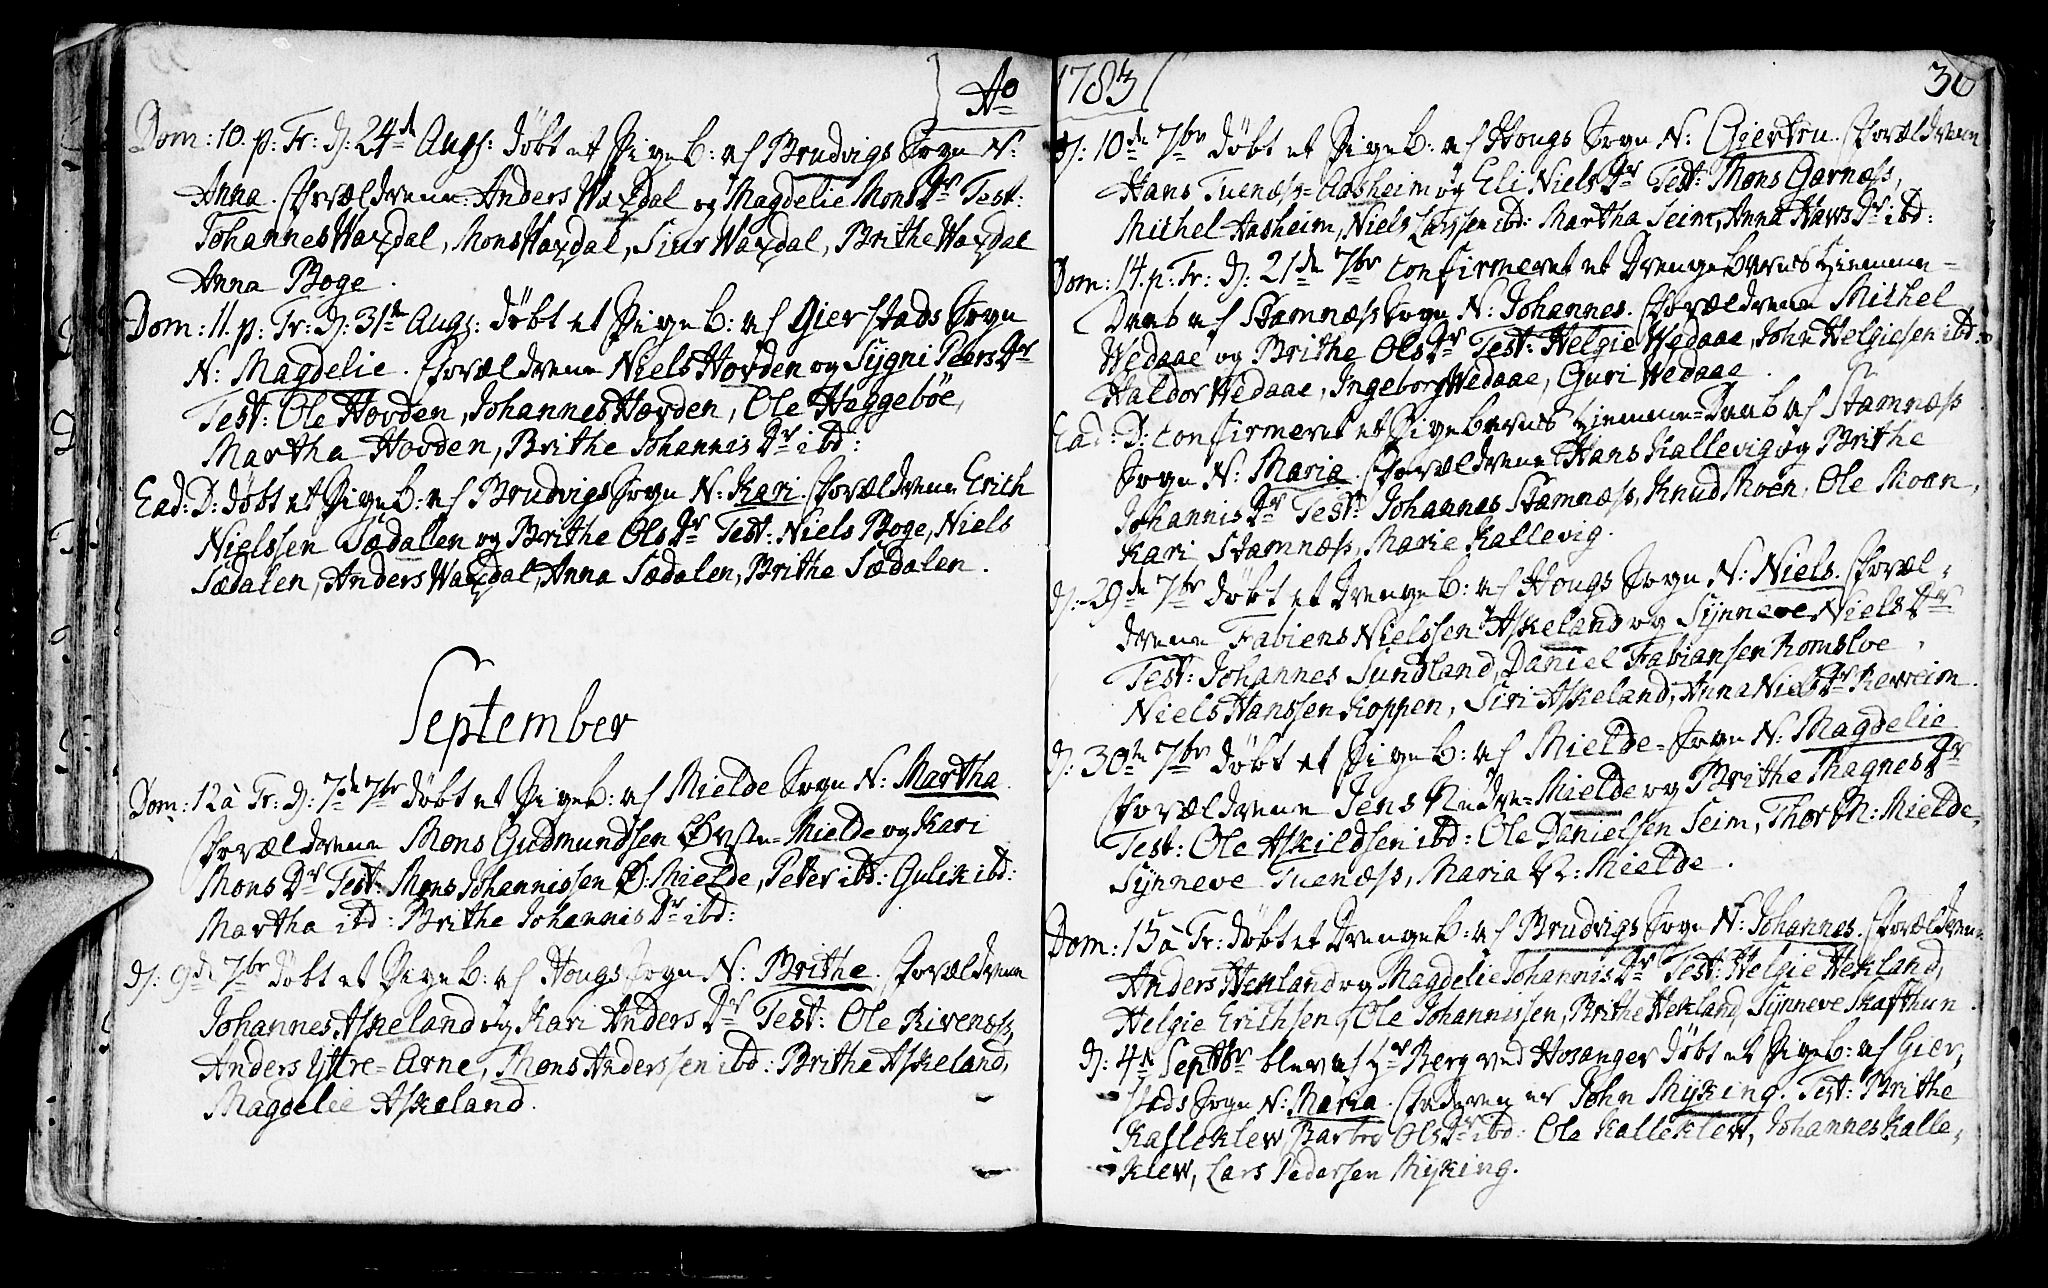 Ao
Dom: 10. p. Tr: D: 24de Aug: döbt et Pige B: af Brudvigs Sogn N:
Anna. Forældrene Anders Waxdal og Magdelie MonsDr Test:
Johannes Waxdal, Mons Waxdal, Siur Waxdal, Brithe Waxdal
Anna Boge.
Dom: 11. p: Tr: D: 31te Aug: döbt et Pige B: af Gierstads Sogn
N: Magdelie. Forældrene Niels Hovden og Sygni PeersDr
Test: Ole Hovden, Johannes Hovden, Ole Heggeböe,
Martha Hovden, Brithe JohannisDr ibd:
Ead: D: döbt et Pige B: af Brudvigs Sogn N: Kari. Forældrene Erich
Nielssen Sædalen og Brithe OlsDr Test: Niels Boge, Niels
Sædalen, Anders Waxdal, Anna Sædalen, Brithe Sædalen.
September
Dom: 12 à Tr: D: 7de 7br döbt et Pige B: af Mielde Sogn N: Martha.
Forældrene Mons Gudmundsen Øvste-Mielde og Kari
MonsDr Test: Mons Johannissen Ø: Mielde, Peter ibd: Gulik ibd:
Martha ibd: Brithe JohannisDr ibd:
D: 9de 7br döbt et Pige B: af Hougs Sogn N: Brithe. Forældrene
Johannes Askeland og Kari AndersDr Test: Ole Rivenæss,
Anders Yttre-Arne, Mons Anderssen ibd: Brithe Askeland,
Magdelie Askeland.
1783 36
D: 10de 7br döbt et Pige B: af Hougs Sogn N: Giertru. Forældrene
Hans Tuenæss-Aasheim og Eli NielsDr Test: Mons Garnæss,
Michel Aasheim, Niels Larssen ibd: Martha Seim, Anna HansDr ibd:
Dom: 14. p: Tr: D: 21de 7br confirmeret et Drengebarns Hiemme-
Daab af Stamnæss Sogn N: Johannes. Forældrene Michel
Wedaae og Brithe OlsDr Test: Helgie Wedaae, John Helgiesen ibd:
Haldor Wedaae, Ingeborg Wedaae, Guri Wedaae.
Ead: D: confirmeret et Pigebarns Hiemme-Daab af Stamnæss
Sogn N: Maria. Forældrene Hans Kallevig og Brithe
JohannisDr Test: Johannes Stamnæss, Knud Moen, Ole Moen,
Kari Stamnæss, Marie Kallevig.
D: 29de 7br döbt et Drenge B: af Hougs Sogn N: Niels. Foræl-
drene Fabiens Nielssen Askeland og Synneve NielsDr
Test: Johannes Sundland, Daniel Fabiansen Romsloe,
Niels Hanssen Koppen, Siri Askeland, Anna NielsDr Reweim.
D: 30te 7br döbt et Pige B: af Mielde-Sogn N: Magdelie
Forældrene Jens Nedre-Mielde og Brithe MagnesDr
Test: Ole Askildsen ibd: Ole Danielsen Seim, Thor N: Mielde,
Synneve Tuenæss, Maria N: Mielde.
Dom: 15 à Tr: döbt et Drenge B: af Brudvigs Sogn N: Johannes. Forældrene
Anders Hekland og Magdelie JohannisDr Test: Helgie Hekland,
Helgie Erichsen, Ole Johannissen, Brithe Hekland, Synneve Skafthun.
D: 4de Septbr blev af Hr Berg ved Hosanger döbt et Pige B: af Gier-
stads Sogn N: Maria. Faderen er John Myking. Test: Brithe
Kalleklew, Barbro OlsDr ibd: Ole Kalleklew, Johannes Kalle-
klew, Lars Pedersen Myking.